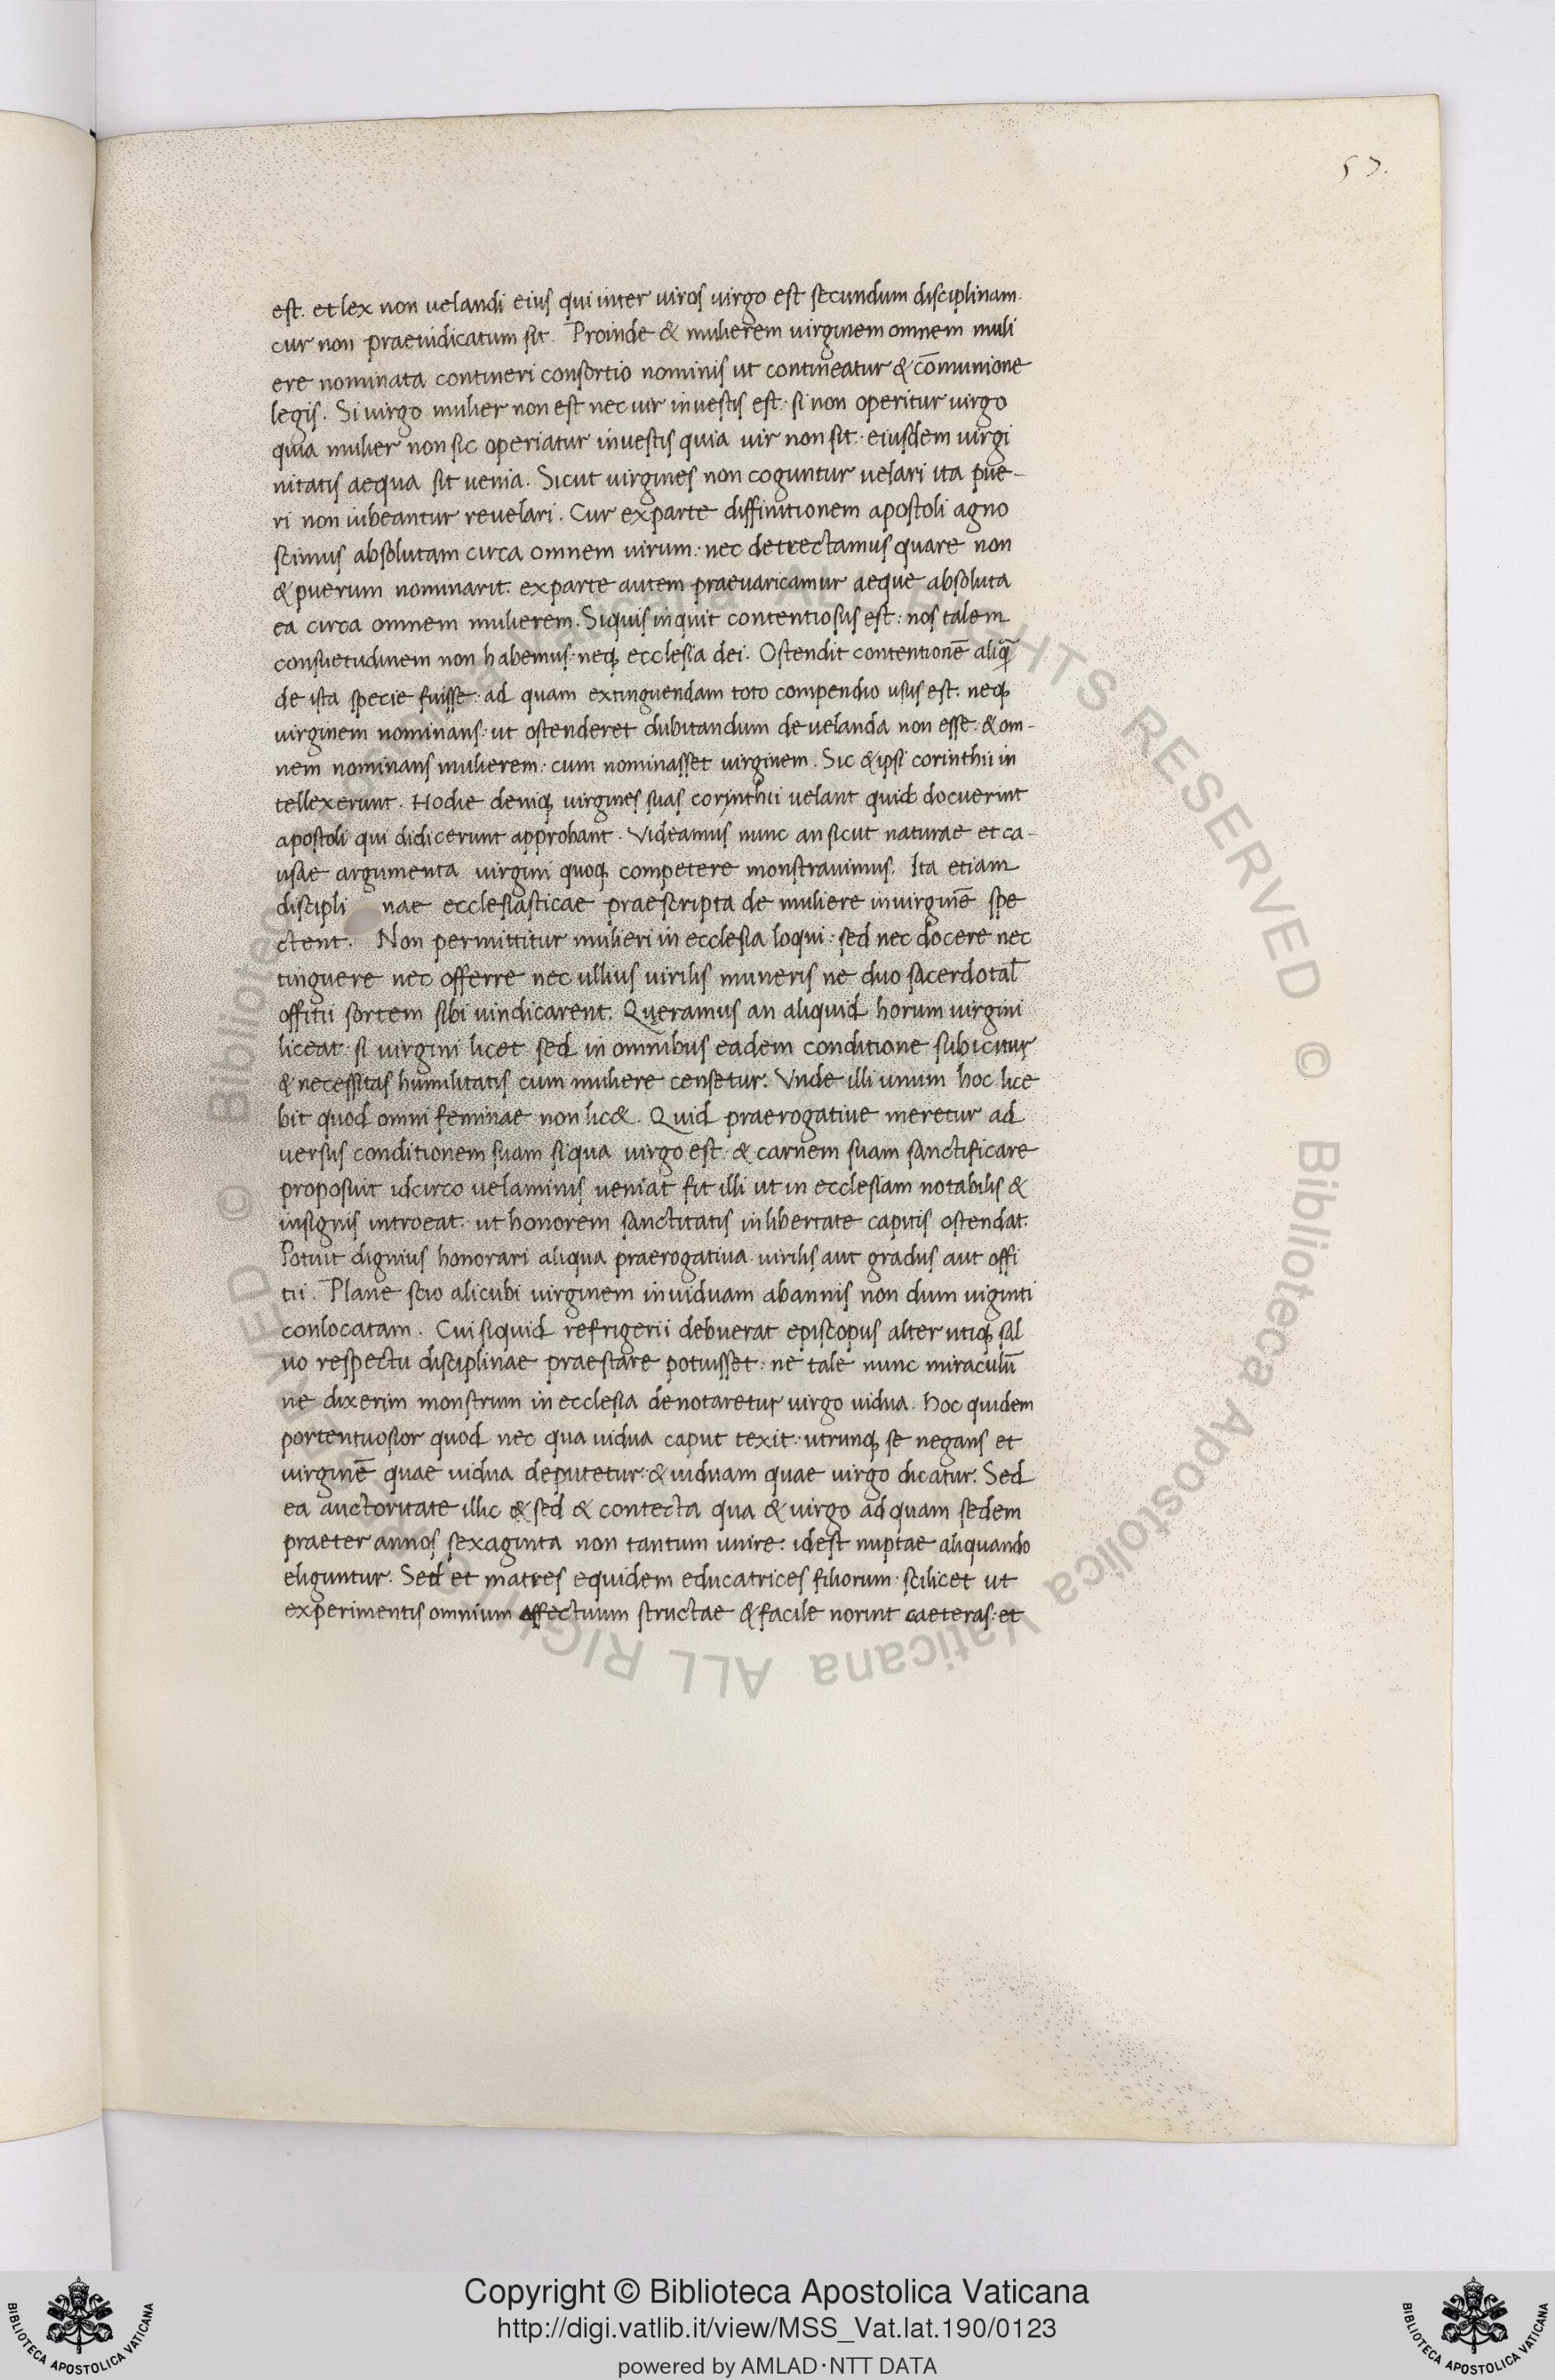 57.
est. et lex non uelandi eius qui inter uiros uirgo est secundum disciplinam.
cur non praeiudicatum sit. Proinde & mulierem uirginem omnem muli
ere nominata contineri consortio nominis ut contineatur & cōmunione
legis. Si uirgo mulier non est nec uir inuestis est: si non operitur uirgo
quia mulier non sic operiatur inuestis quia uir non sit: eiusdem uirgi
nitatis aequa sit uenia. Sicut uirgines non coguntur uelari ita pue-
ri non iubeantur reuelari. Cur ex parte diffinitionem apostoli agno
scimus absolutam circa omnem uirum: nec detrectamus quare non
& puerum nominarit. ex parte autem praeuaricamur aeque absoluta
ea circa omnem mulierem. Siquis inquit contentiosus est: nos talem
consuetudinem non habemus: neq; ecclesia dei. Ostendit contentionē aliquā
de ista specie fuisse: ad quam extinguendam toto compendio usus est. neq;
uirginem nominans: ut ostenderet dubitandum de uelanda non esse. & om-
nem nominans mulierem: cum nominasset uirginem. Sic & ipsi corinthii in
tellexerunt. Hodie deniq; uirgines suas corinthii uelant quid docuerint
apostoli qui didicerunt approbant. Videamus nunc an sicut naturae et ca-
usae argumenta uirgini quoq; competere monstrauimus. Ita etiam
discipli nae ecclesiasticae praescripta de muliere in uirginē spe
ctent. Non permittitur mulieri in ecclesia loqui: sed nec docere nec
tinguere nec offerre nec ullius uirilis muneris ne duo sacerdotal̄
offitii sortem sibi uindicarent. Quęramus an aliquid horum uirgini
liceat: si uirgini licet sed in omnibus eadem conditione subicitur
& necessitas humilitatis cum muliere censetur. Vnde illi unum hoc lice
bit quod omni feminae non lic&. Quid praerogatiue meretur ad
uersus conditionem suam siqua uirgo est: & carnem suam sanctificare
proposuit idcirco uelaminis ueniat fit illi ut in ecclesiam notabilis &
insignis introeat: ut honorem sanctitatis in libertate capitis ostendat.
Potuit dignius honorari aliqua praerogatiua uirilis aut gradus aut offi
tii. Plane scio alicubi uirginem in uiduam ab annis non dum uiginti
conlocatam. Cui siquid refrigerii debuerat episcopus alter utiq; sal
uo respectu disciplinae praestare potuisset: ne tale nunc miraculū
ne dixerim monstrum in ecclesia denotaretur uirgo uidua. hoc quidem
portentuosior quod nec qua uidua caput texit: utrunq; se negans et
uirginē quae uidua deputetur: & uiduam quae uirgo dicatur. Sed
ea auctoritate illic & sed & contecta qua & uirgo ad quam sedem
praeter annos sexaginta non tantum unire: idest nuptae aliquando
eliguntur. Sed et matres equidem educatrices filiorum: scilicet ut
experimentis omnium affectuum structae & facile norint caeteras: et
© Biblioteca Apostolica Vaticana ALL RIGHTS RESERVED © Biblioteca Apostolica Vaticana ALL RIGHTS RESERVED
BIBLIOTECA APOSTOLICA VATICANA
Copyright © Biblioteca Apostolica Vaticana
http://digi.vatlib.it/view/MSS_Vat.lat.190/0123
powered by AMLAD·NTT DATA
BIBLIOTECA APOSTOLICA VATICANA